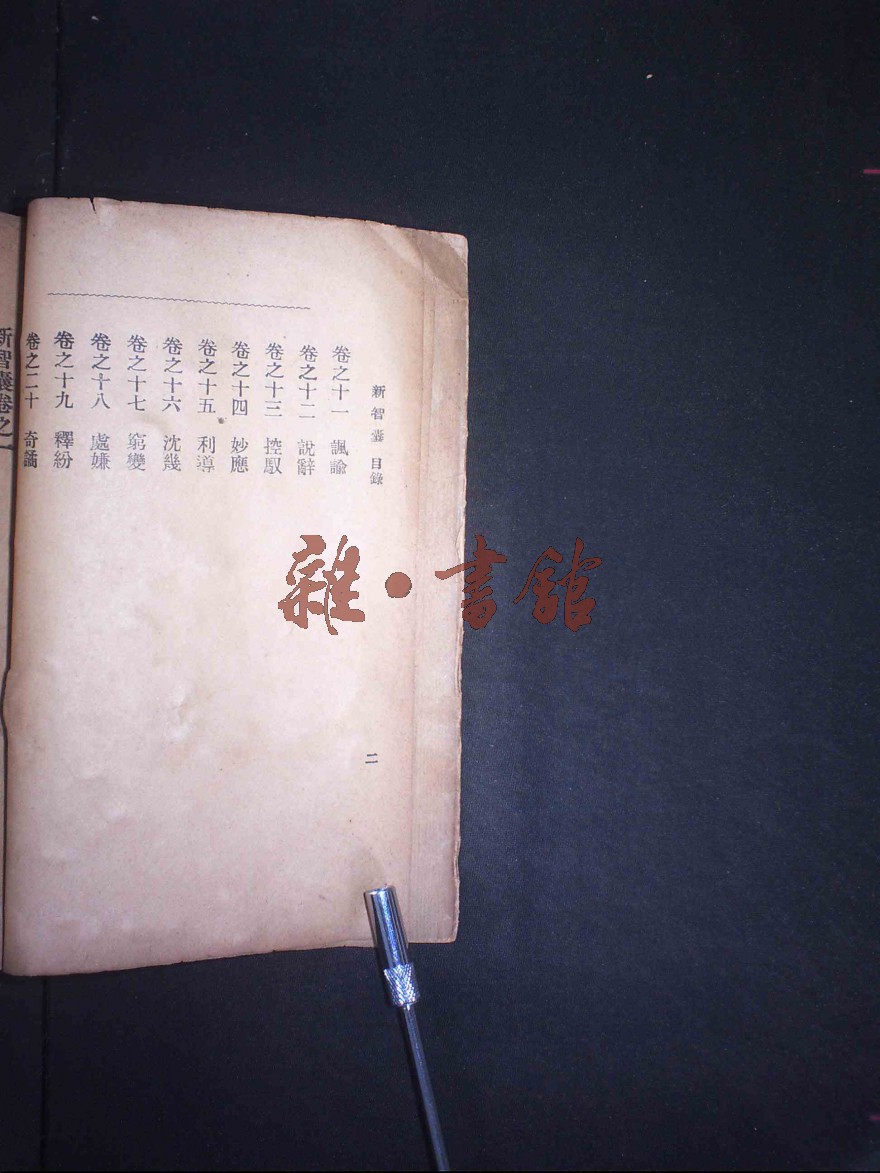 新智囊 目錄
卷之十一 諷諭
卷之十二 說辭
卷之十三 控馭
卷之十四 妙應
卷之十五 利導
卷之十六 沈幾
卷之十七 窮變
卷之十八 處嫌
卷之十九 釋紛
卷之二十 奇譎
二
新智囊卷之一
雜·書館